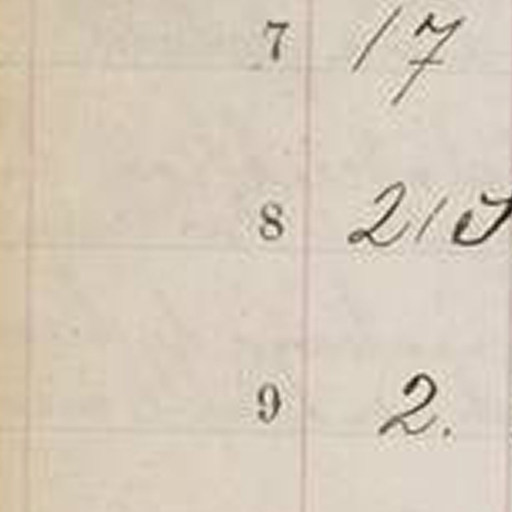 7 17
8 215
9 2.